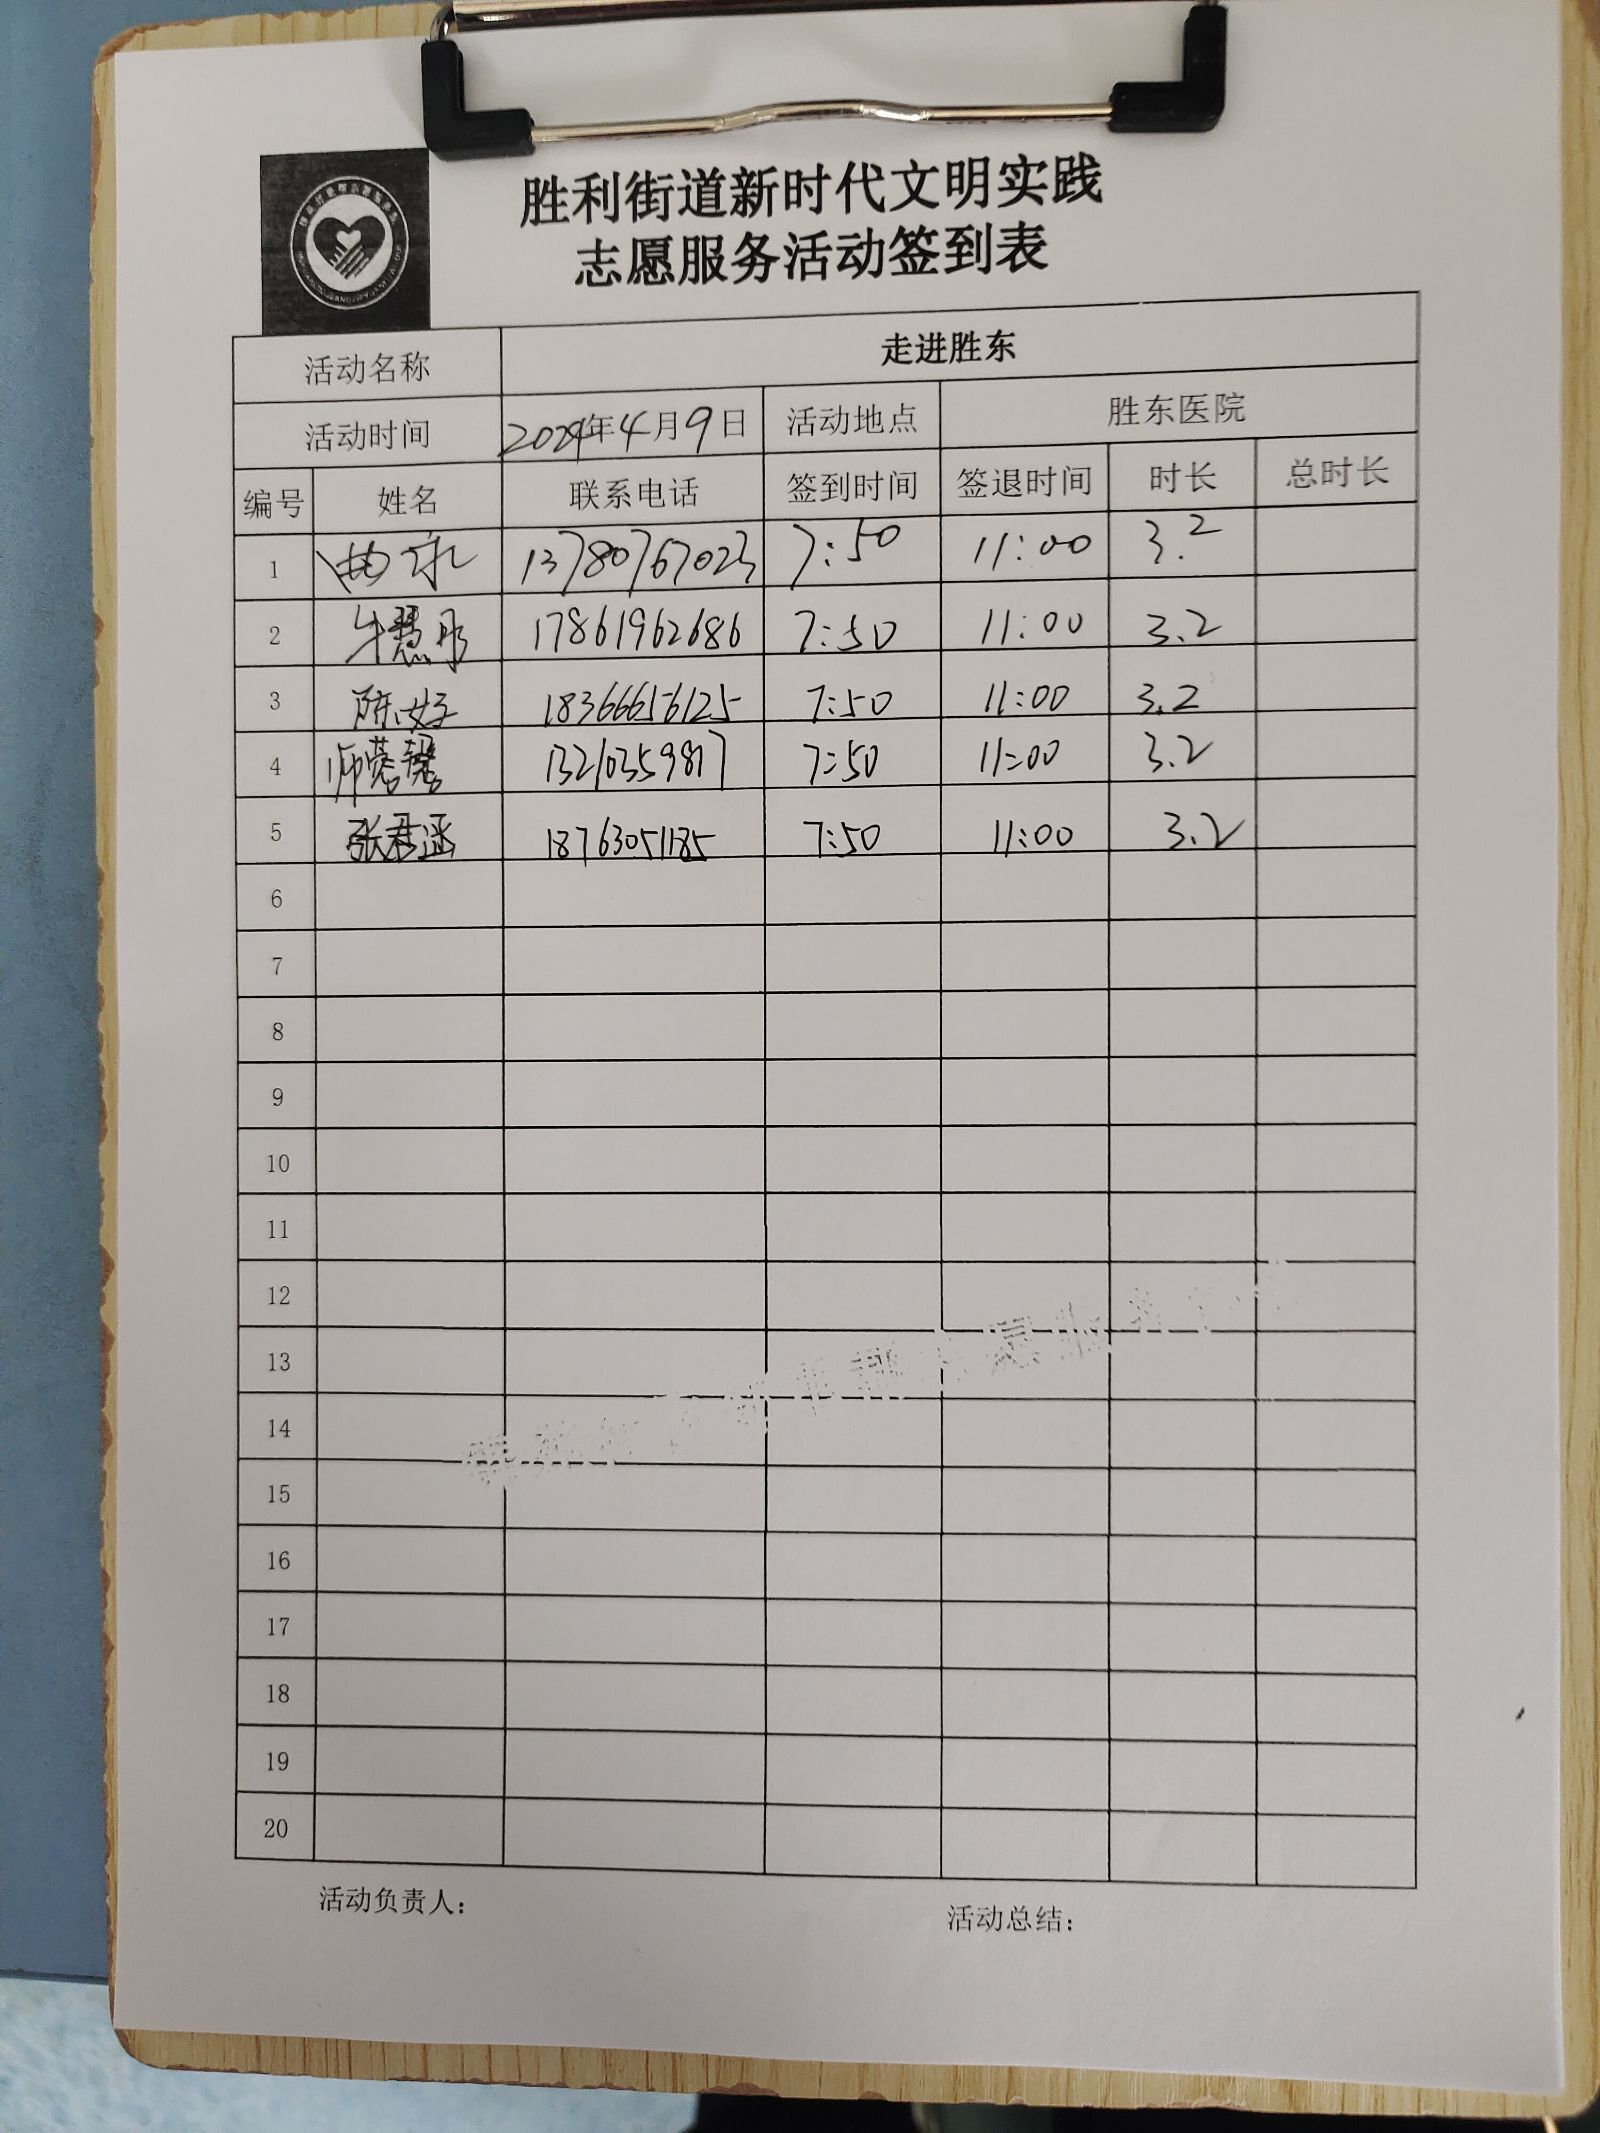 胜利街道新时代文明实践
志愿服务活动签到表
活动名称 走进胜东
活动时间 2024年4月9日 活动地点 胜东医院
编号 姓名 联系电话 签到时间 签退时间 时长 总时长
1 曲永 13780767023 7:50 11:00 3.2
2 牛慧彤 17861962686 7:50 11:00 3.2
3 陈好 18366656125 7:50 11:00 3.2
4 师蓉馨 13210359817 7:50 11:00 3.2
5 张君涵 18763051185 7:50 11:00 3.2
6
7
8
9
10
11
12
13
14
15
16
17
18
19
20
活动负责人： 活动总结：